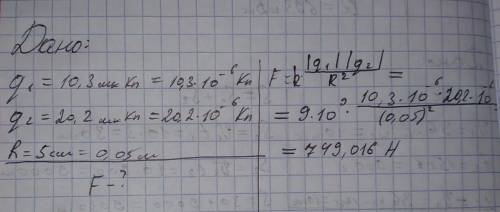 Дано:
q₁ = 10,3 мкКл = 10,3·10⁻⁶ Кл
q₂ = 20,2 мкКл = 20,2·10⁻⁶ Кл
R = 5 см = 0,05 м
F - ?
F = k |q₁| |q₂| / R² =
= 9·10⁹ · 10,3·10⁻⁶ · 20,2·10⁻⁶ / (0,05)²
= 749,016 Н